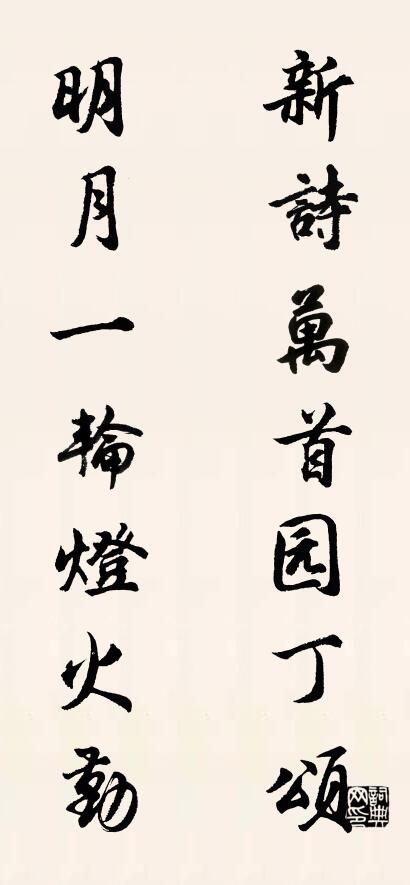 新詩萬首园丁頌
明月一輪燈火勤
詞典网印